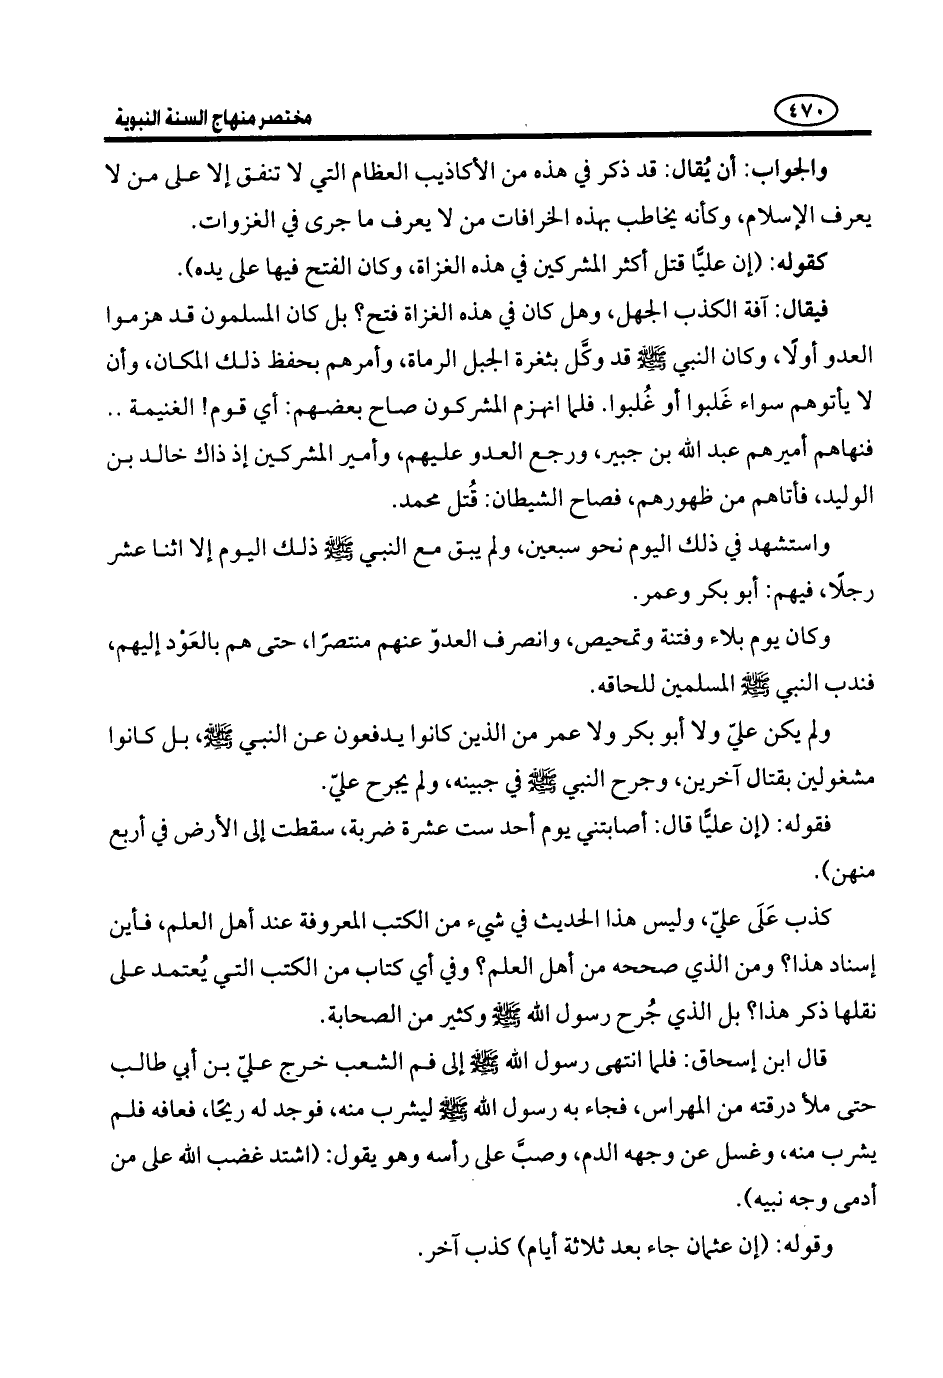 ٤٧٠
مختصر منهاج السنة النبوية
والجواب: أن يُقال: قد ذكر في هذه من الأكاذيب العظام التي لا تنفق إلا على من لا
يعرف الإسلام، وكأنه يخاطب بهذه الخرافات من لا يعرف ما جرى في الغزوات.
كقوله: (إن عليًّا قتل أكثر المشركين في هذه الغزاة، وكان الفتح فيها على يده).
فيقال: آفة الكذب الجهل، وهل كان في هذه الغزاة فتح؟ بل كان المسلمون قد هزموا
العدو أولًا، وكان النبي ﷺ قد وكَّل بثغرة الجبل الرماة، وأمرهم بحفظ ذلك المكان، وأن
لا يأتوهم سواء غَلبوا أو غُلبوا. فلما انهزم المشركون صاح بعضهم: أي قوم! الغنيمة ..
فنهاهم أميرهم عبد الله بن جبير، ورجع العدو عليهم، وأمير المشركين إذ ذاك خالد بن
الوليد، فأتاهم من ظهورهم، فصاح الشيطان: قُتل محمد.
واستشهد في ذلك اليوم نحو سبعين، ولم يبق مع النبي ﷺ ذلك اليوم إلا اثنا عشر
رجلًا، فيهم: أبو بكر وعمر.
وكان يوم بلاء وفتنة وتمحيص، وانصرف العدوّ عنهم منتصرًا، حتى هم بالعَوْد إليهم،
فندب النبي ﷺ المسلمين للحاقه.
ولم يكن عليّ ولا أبو بكر ولا عمر من الذين كانوا يدفعون عن النبي ﷺ، بل كانوا
مشغولين بقتال آخرين، وجرح النبي ﷺ في جبينه، ولم يجرح عليّ.
فقوله: (إن عليًّا قال: أصابتني يوم أحد ست عشرة ضربة، سقطت إلى الأرض في أربع
منهن).
كذب عَلَى عليّ، وليس هذا الحديث في شيء من الكتب المعروفة عند أهل العلم، فأين
إسناد هذا؟ ومن الذي صححه من أهل العلم؟ وفي أي كتاب من الكتب التي يُعتمد على
نقلها ذكر هذا؟ بل الذي جُرح رسول الله ﷺ وكثير من الصحابة.
قال ابن إسحاق: فلما انتهى رسول الله ﷺ إلى فم الشعب خرج عليّ بن أبي طالب
حتى ملأ درقته من المهراس، فجاء به رسول الله ﷺ ليشرب منه، فوجد له ريحًا، فعافه فلم
يشرب منه، وغسل عن وجهه الدم، وصبَّ على رأسه وهو يقول: (اشتد غضب الله على من
أدمى وجه نبيه).
وقوله: (إن عثمان جاء بعد ثلاثة أيام) كذب آخر.